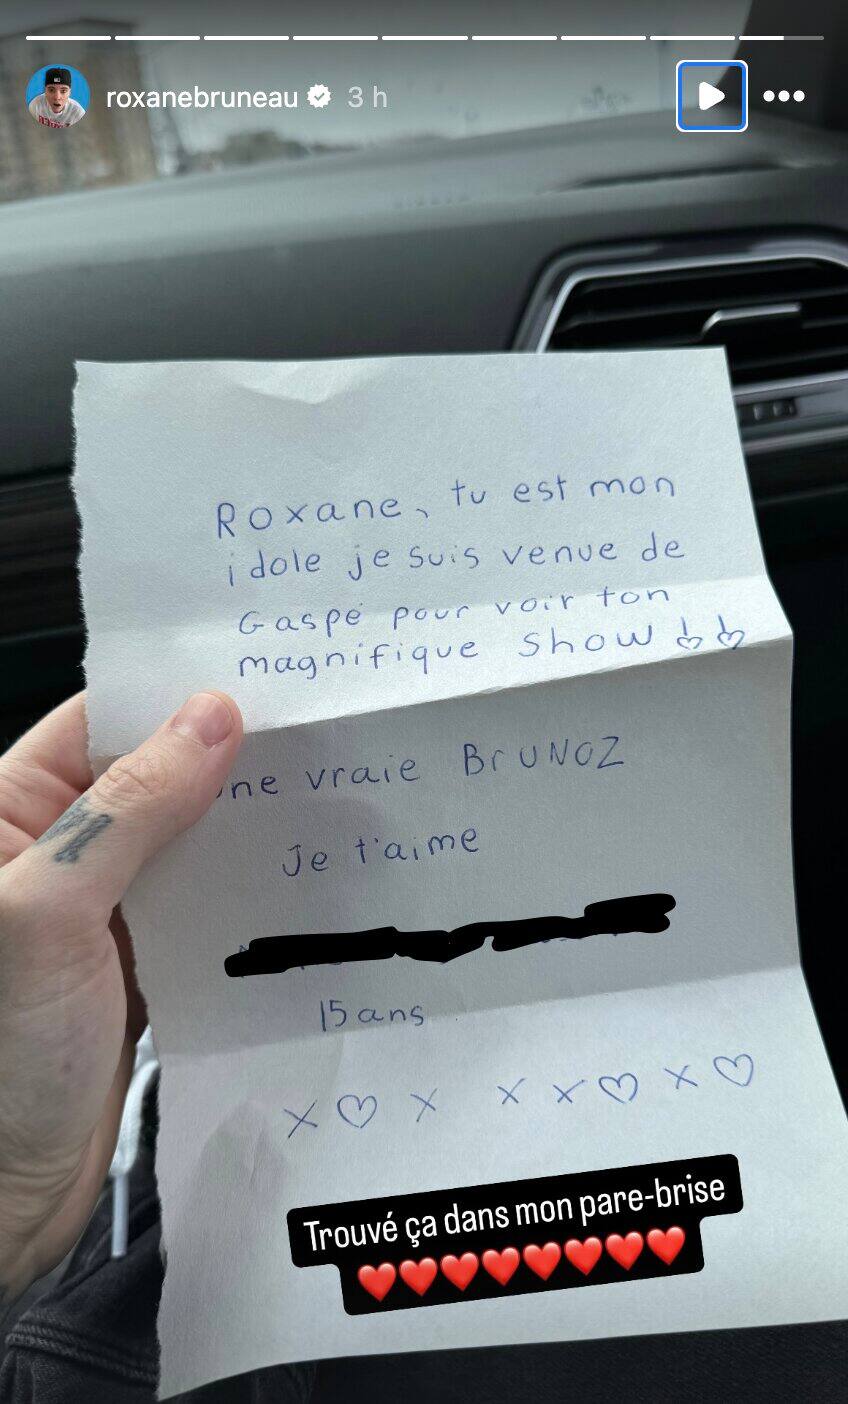 roxanebruneau 3 h
Roxane, tu est mon
idole je suis venue de
Gaspé pour voir ton
magnifique show
une vraie BrUNOZ
Je t'aime
15 ans
x ♡ x x x ♡ x ♡
Trouvé ça dans mon pare-brise
❤️❤️❤️❤️❤️❤️❤️❤️